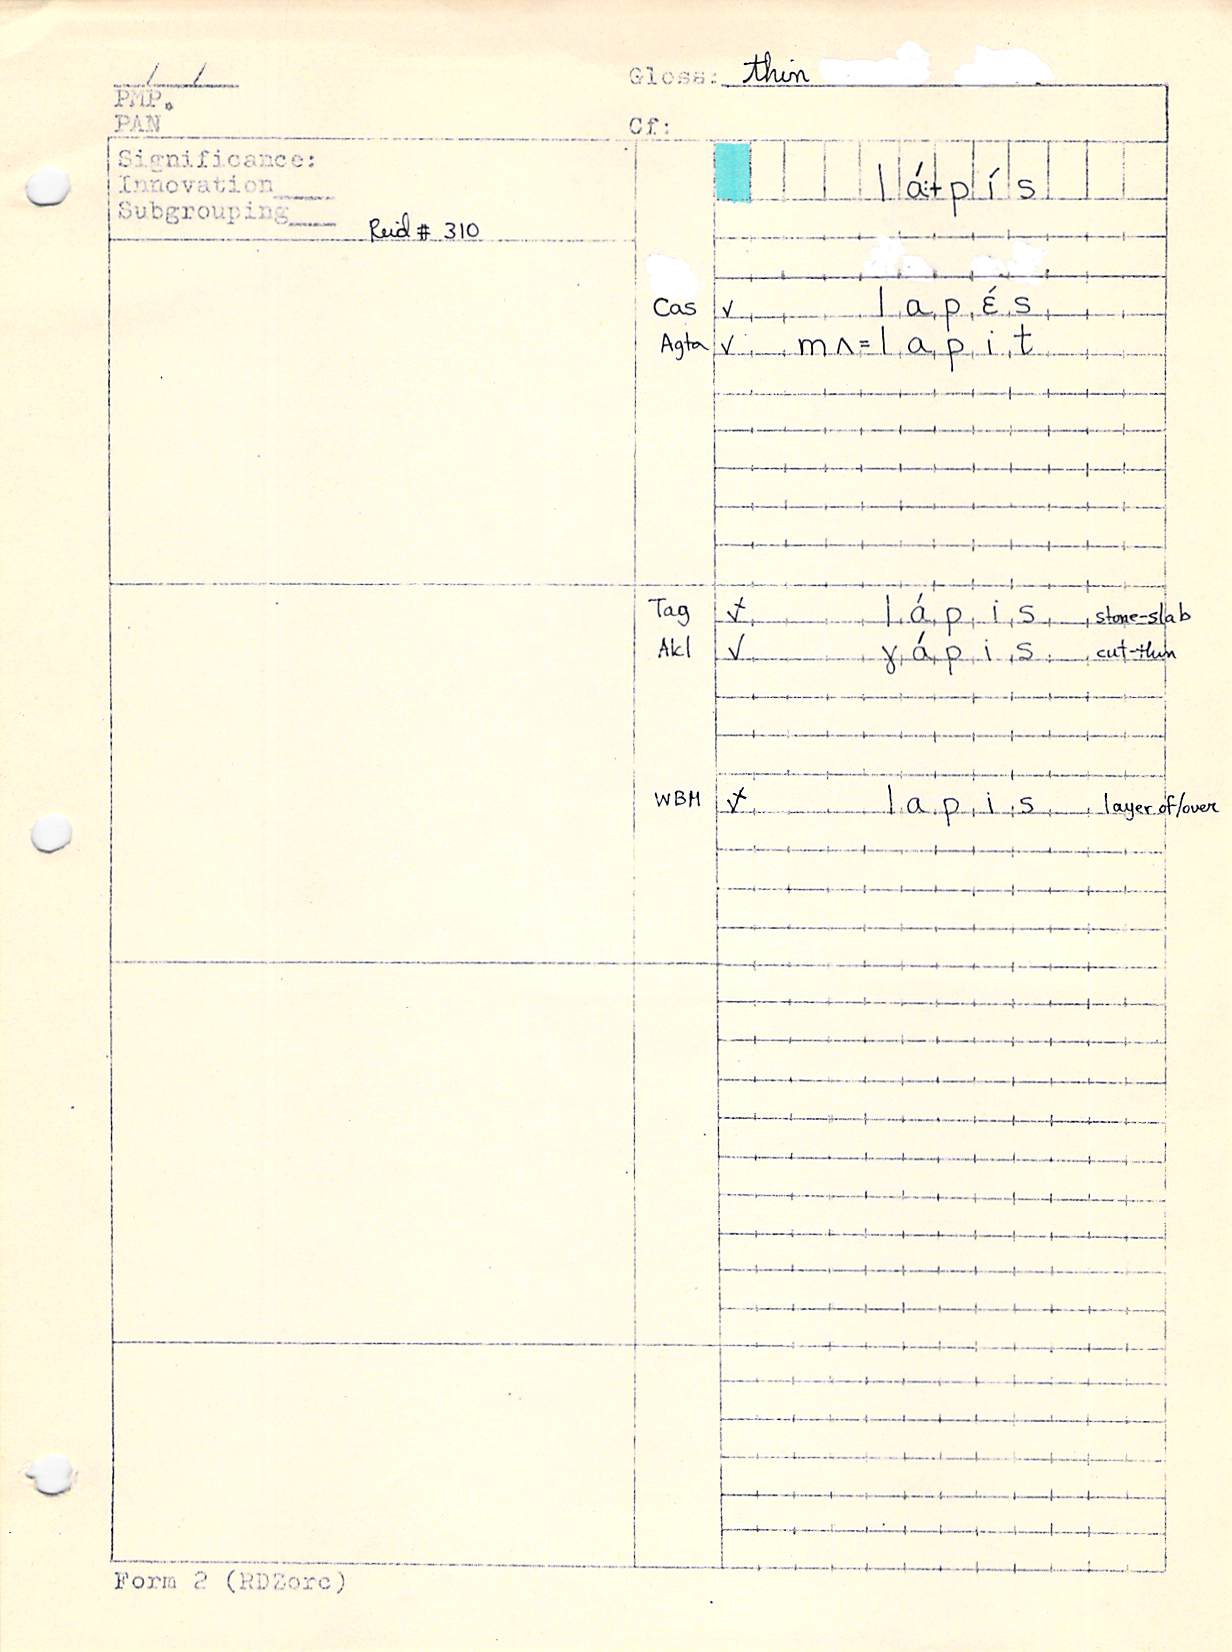 Gloss: thin
PMP.
PAN
Cf:
Significance:
Innovation
Subgrouping
Reid # 310
lá+pís
Cas ✓ lapés
Agta ✓ mʌ=lapit
Tag ✓ lápis stone-slab
Akl ✓ ɣápis cut-thin
WBM ✓ lapis layer of/over
Form 2 (RDZorc)